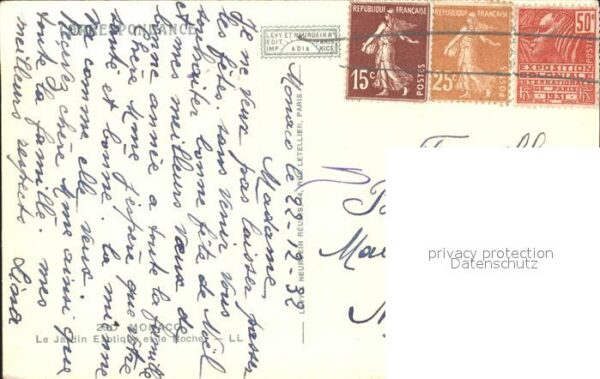 CORRESPONDANCE
LEVY ET NEURDEIN R
EDIT
IMP. ADIA NICE
REPUBLIQUE FRANÇAISE
15c
POSTES
REPUBLIQUE FRANÇAISE
25c
POSTES
50c
EXPOSITION
COLONIALE
INTERNATIONALE
DE PARIS
1931
POSTES
Monaco le 22-12-32
Madame,
Je ne veux pas laisser passer
les fêtes sans venir vous
souhaiter bonne fête de Noël
et mes meilleurs vœux de
bonne année a toute la famille
chère Mme j'espère que votre
santé est bonne. la mienne
comme elle veut.
Recevez chère Mme ainsi que
toute la famille. mes
meilleurs respects
LEVY & NEURDEIN REUNIS, 44, RUE LETELLIER, PARIS
MONACO
Le Jardin Exotique et le Rocher - LL
privacy protection
Datenschutz